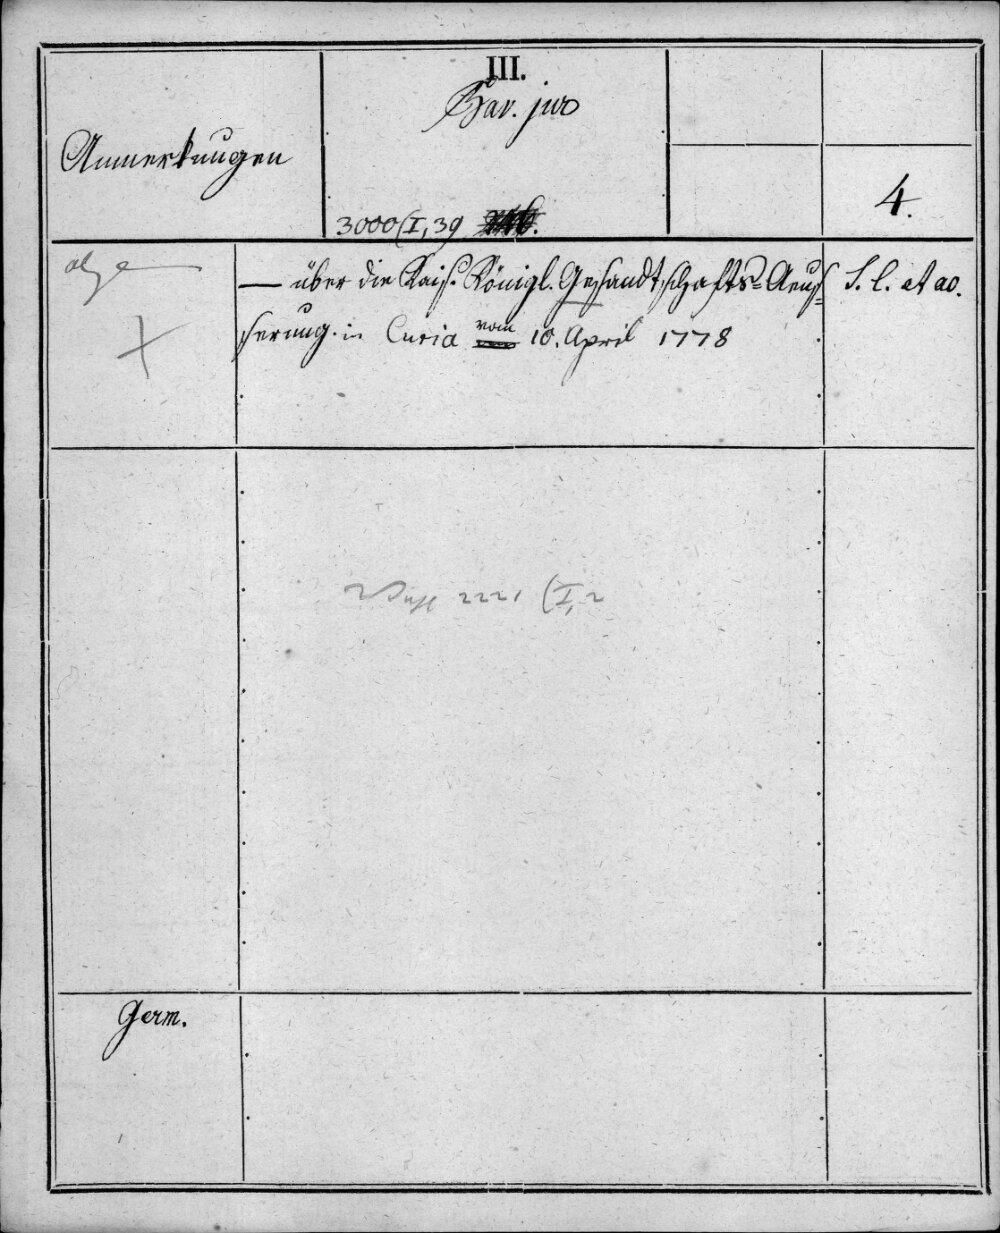 III.
Bav. jur
Anmerkungen
4.
3000 (I, 39
— über die Kais. Königl. Gesandtschafts-Aeus-
serung in Curia vom 10. April 1778
S. l. et ao.
2221 (I, 2
Germ.